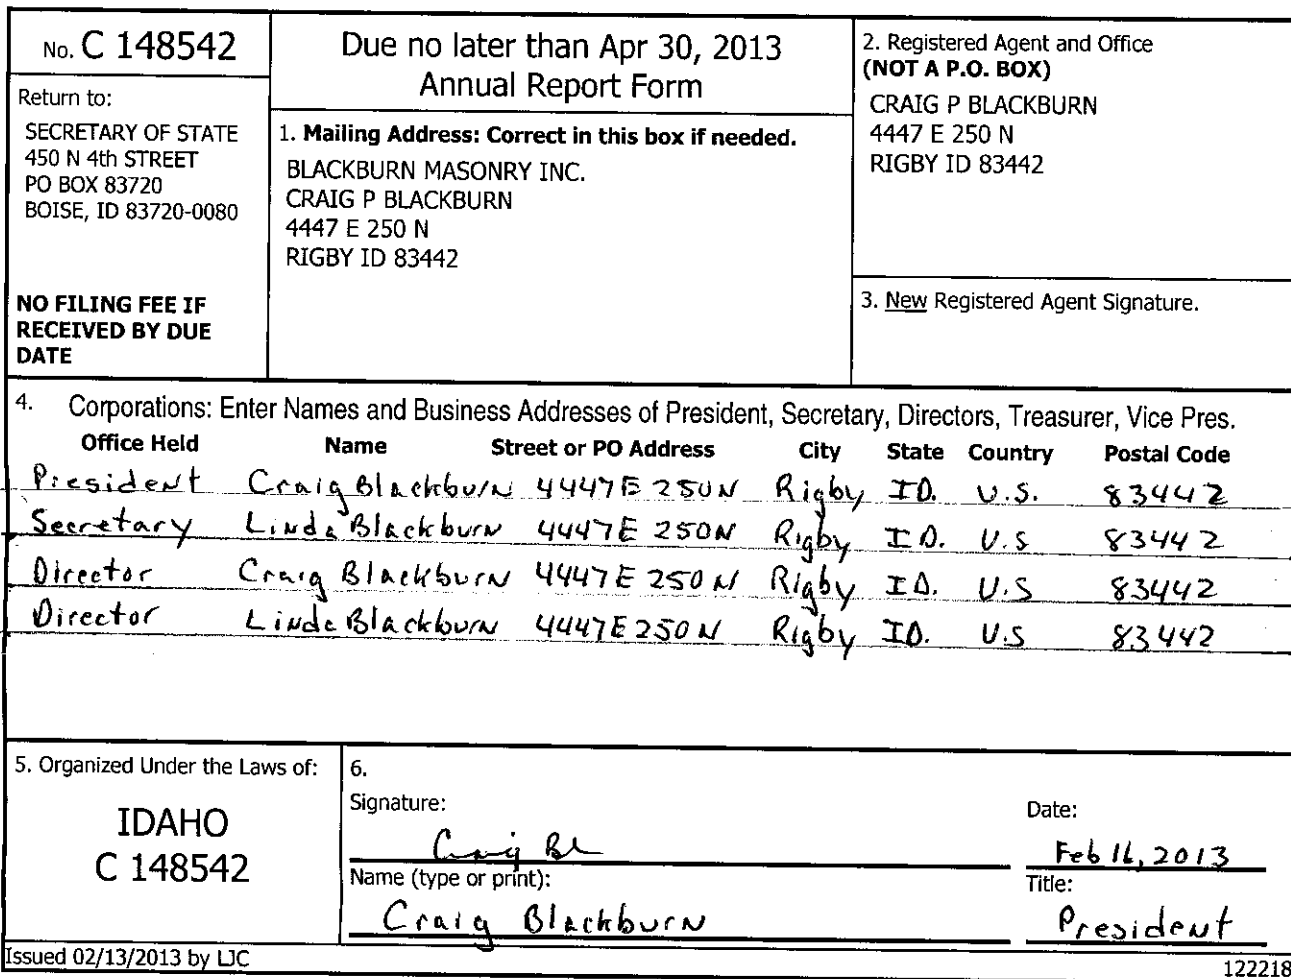 No. C 148542
Return to:
SECRETARY OF STATE
450 N 4th STREET
PO BOX 83720
BOISE, ID 83720-0080
NO FILING FEE IF
RECEIVED BY DUE
DATE
Due no later than Apr 30, 2013
Annual Report Form
1. Mailing Address: Correct in this box if needed.
BLACKBURN MASONRY INC.
CRAIG P BLACKBURN
4447 E 250 N
RIGBY ID 83442
2. Registered Agent and Office
(NOT A P.O. BOX)
CRAIG P BLACKBURN
4447 E 250 N
RIGBY ID 83442
3. New Registered Agent Signature.
4. Corporations: Enter Names and Business Addresses of President, Secretary, Directors, Treasurer, Vice Pres.
Office Held Name Street or PO Address City State Country Postal Code
President Craig Blackburn 4447 E 250 N Rigby ID. U.S. 83442
Secretary Linda Blackburn 4447 E 250 N Rigby ID. U.S 83442
Director Craig Blackburn 4447 E 250 N Rigby ID. U.S 83442
Director Linda Blackburn 4447 E 250 N Rigby ID. U.S 83442
5. Organized Under the Laws of:
IDAHO
C 148542
6.
Signature:
Craig Bl
Date:
Feb 16, 2013
Name (type or print):
Craig Blackburn
Title:
President
Issued 02/13/2013 by LJC
122218